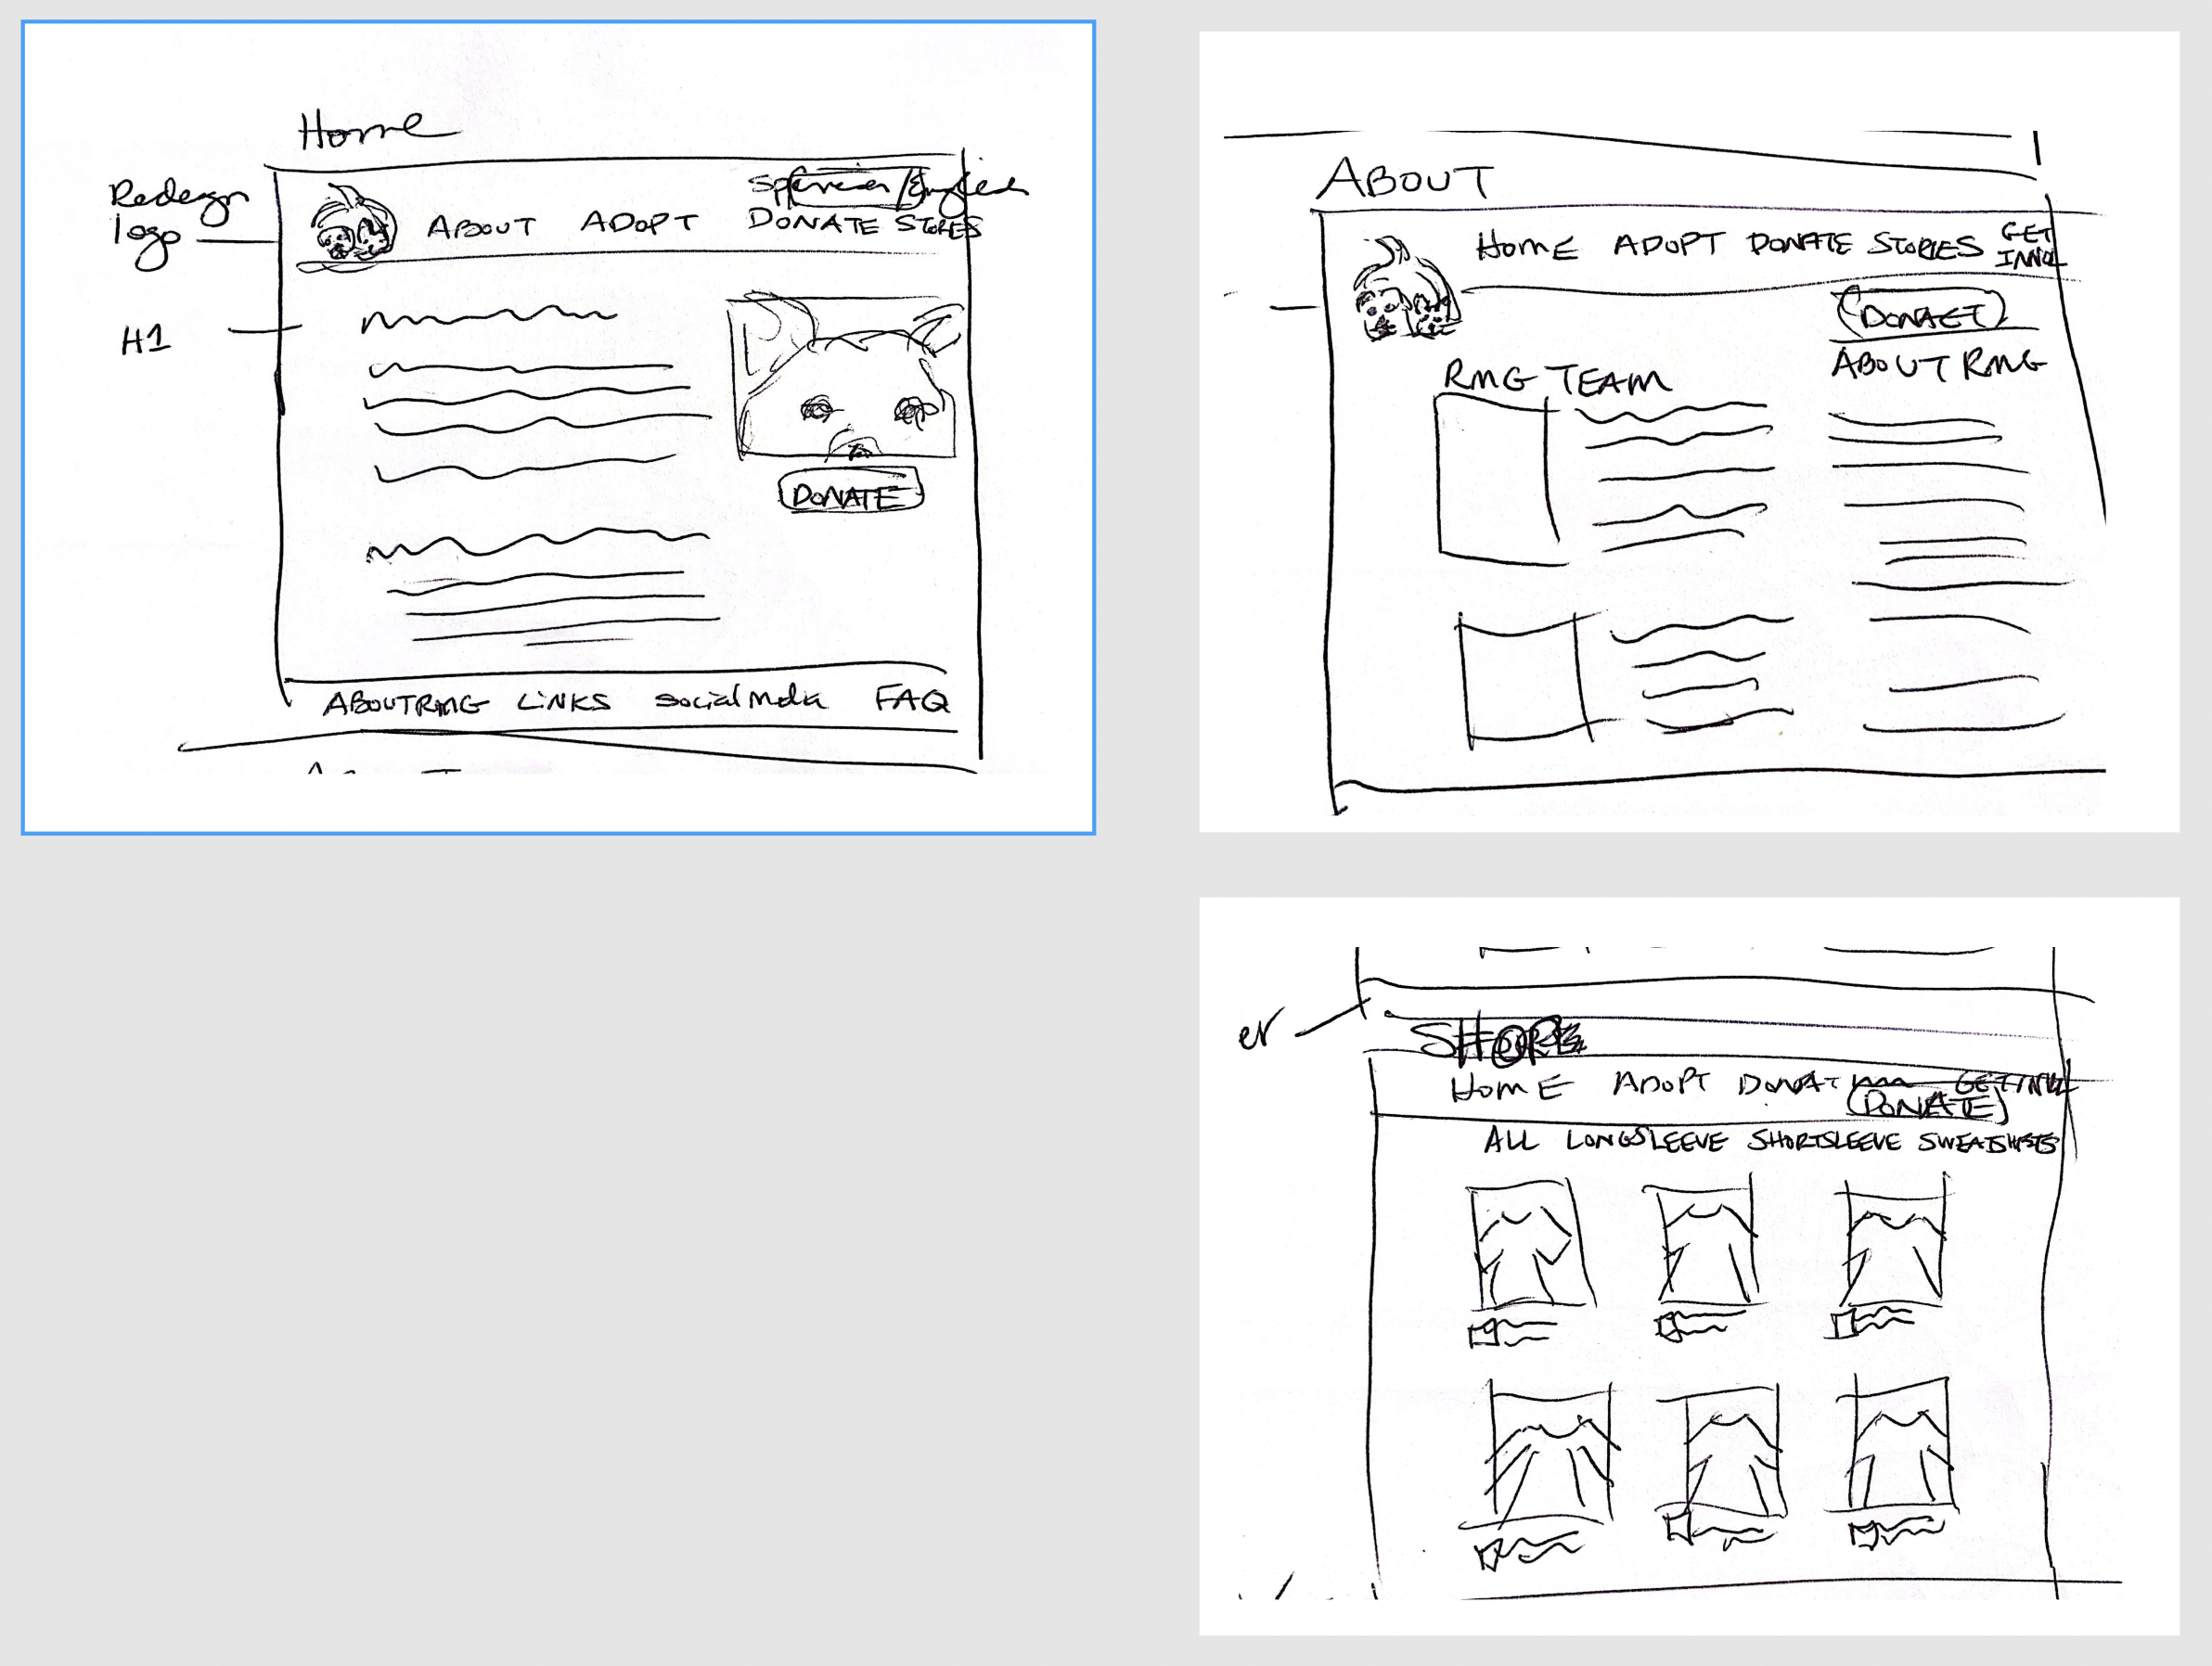 Home
Redesign
logo
ABOUT ADOPT DONATE STORIES
H1
DONATE
ABOUT RMG LINKS social media FAQ
ABOUT
HOME ADOPT DONATE STORIES GET
DONATE
RMG TEAM
ABOUT RMG
er
HOME ADOPT DONAT
DONATE
ALL LONGSLEEVE SHORTSLEEVE SWEATSHIRTS